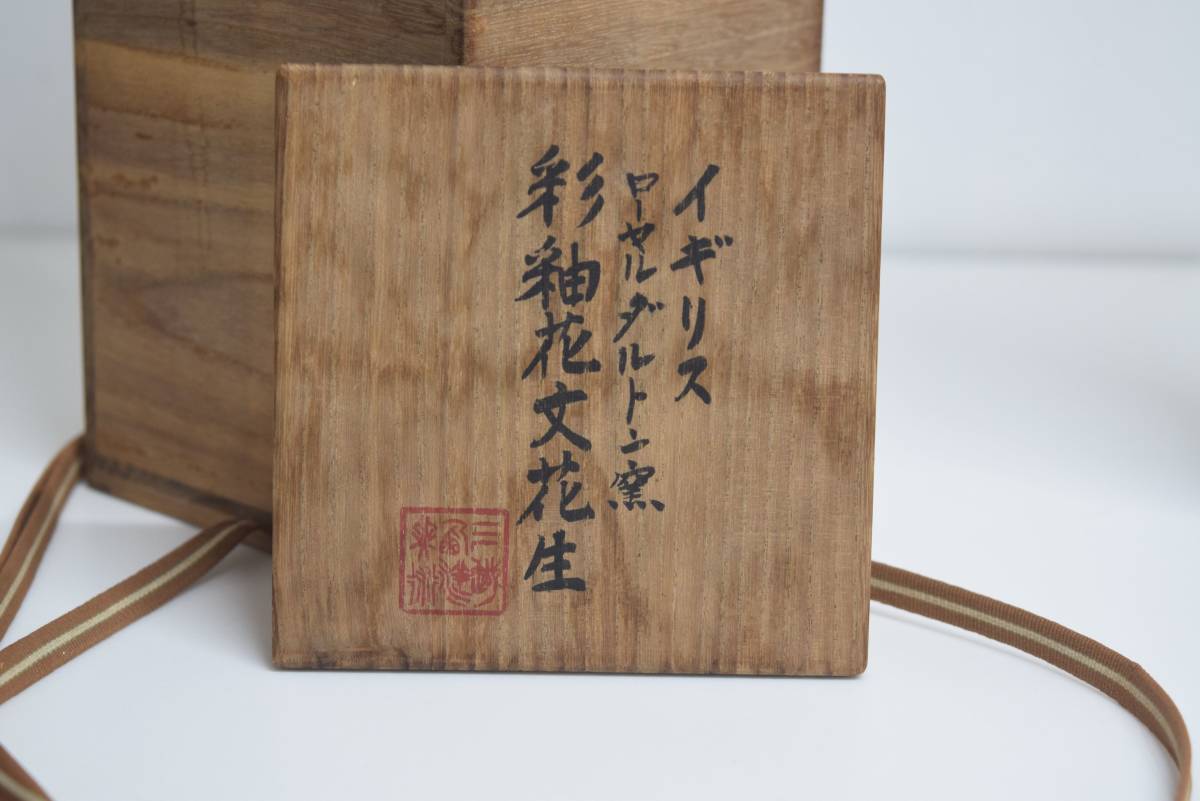 イギリス
ローヤルダルトン窯
彩釉花文花生